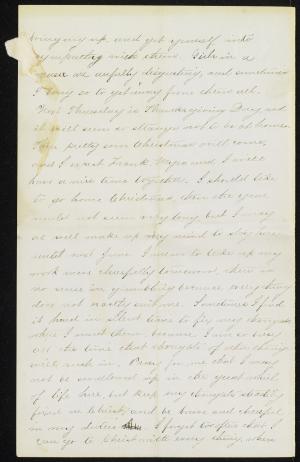 bringing up and get yourself into
sympathy with them. Girls in a
are awfully disgusting, and sometimes
I long so to get away from them all.
Next Thursday is Thanksgiving Day and
it will seem so strange not to be at home.
Then pretty soon Christmas will come,
and I expect Frank, and I will
have a nice time together. I should like
to go home Christmas, then the year
would not seem very long but I may
as well make up my mind to stay here
until next June. I mean to take up my
work more cheerfully tomorrow, there is
no use in grumbling because everything
does not exactly suit me. Sometimes I find
it hard in Silent time to fix my thoughts
where I want them because I am so busy
all the time that thoughts of other things
will rush in. Pray for me that I may
not be swallowed up in the great whirl
of life here, but keep my thoughts steadily
fixed on Christ, and be brave and cheerful
in my duties. I forget too often that I
can go to Christ with every thing, when